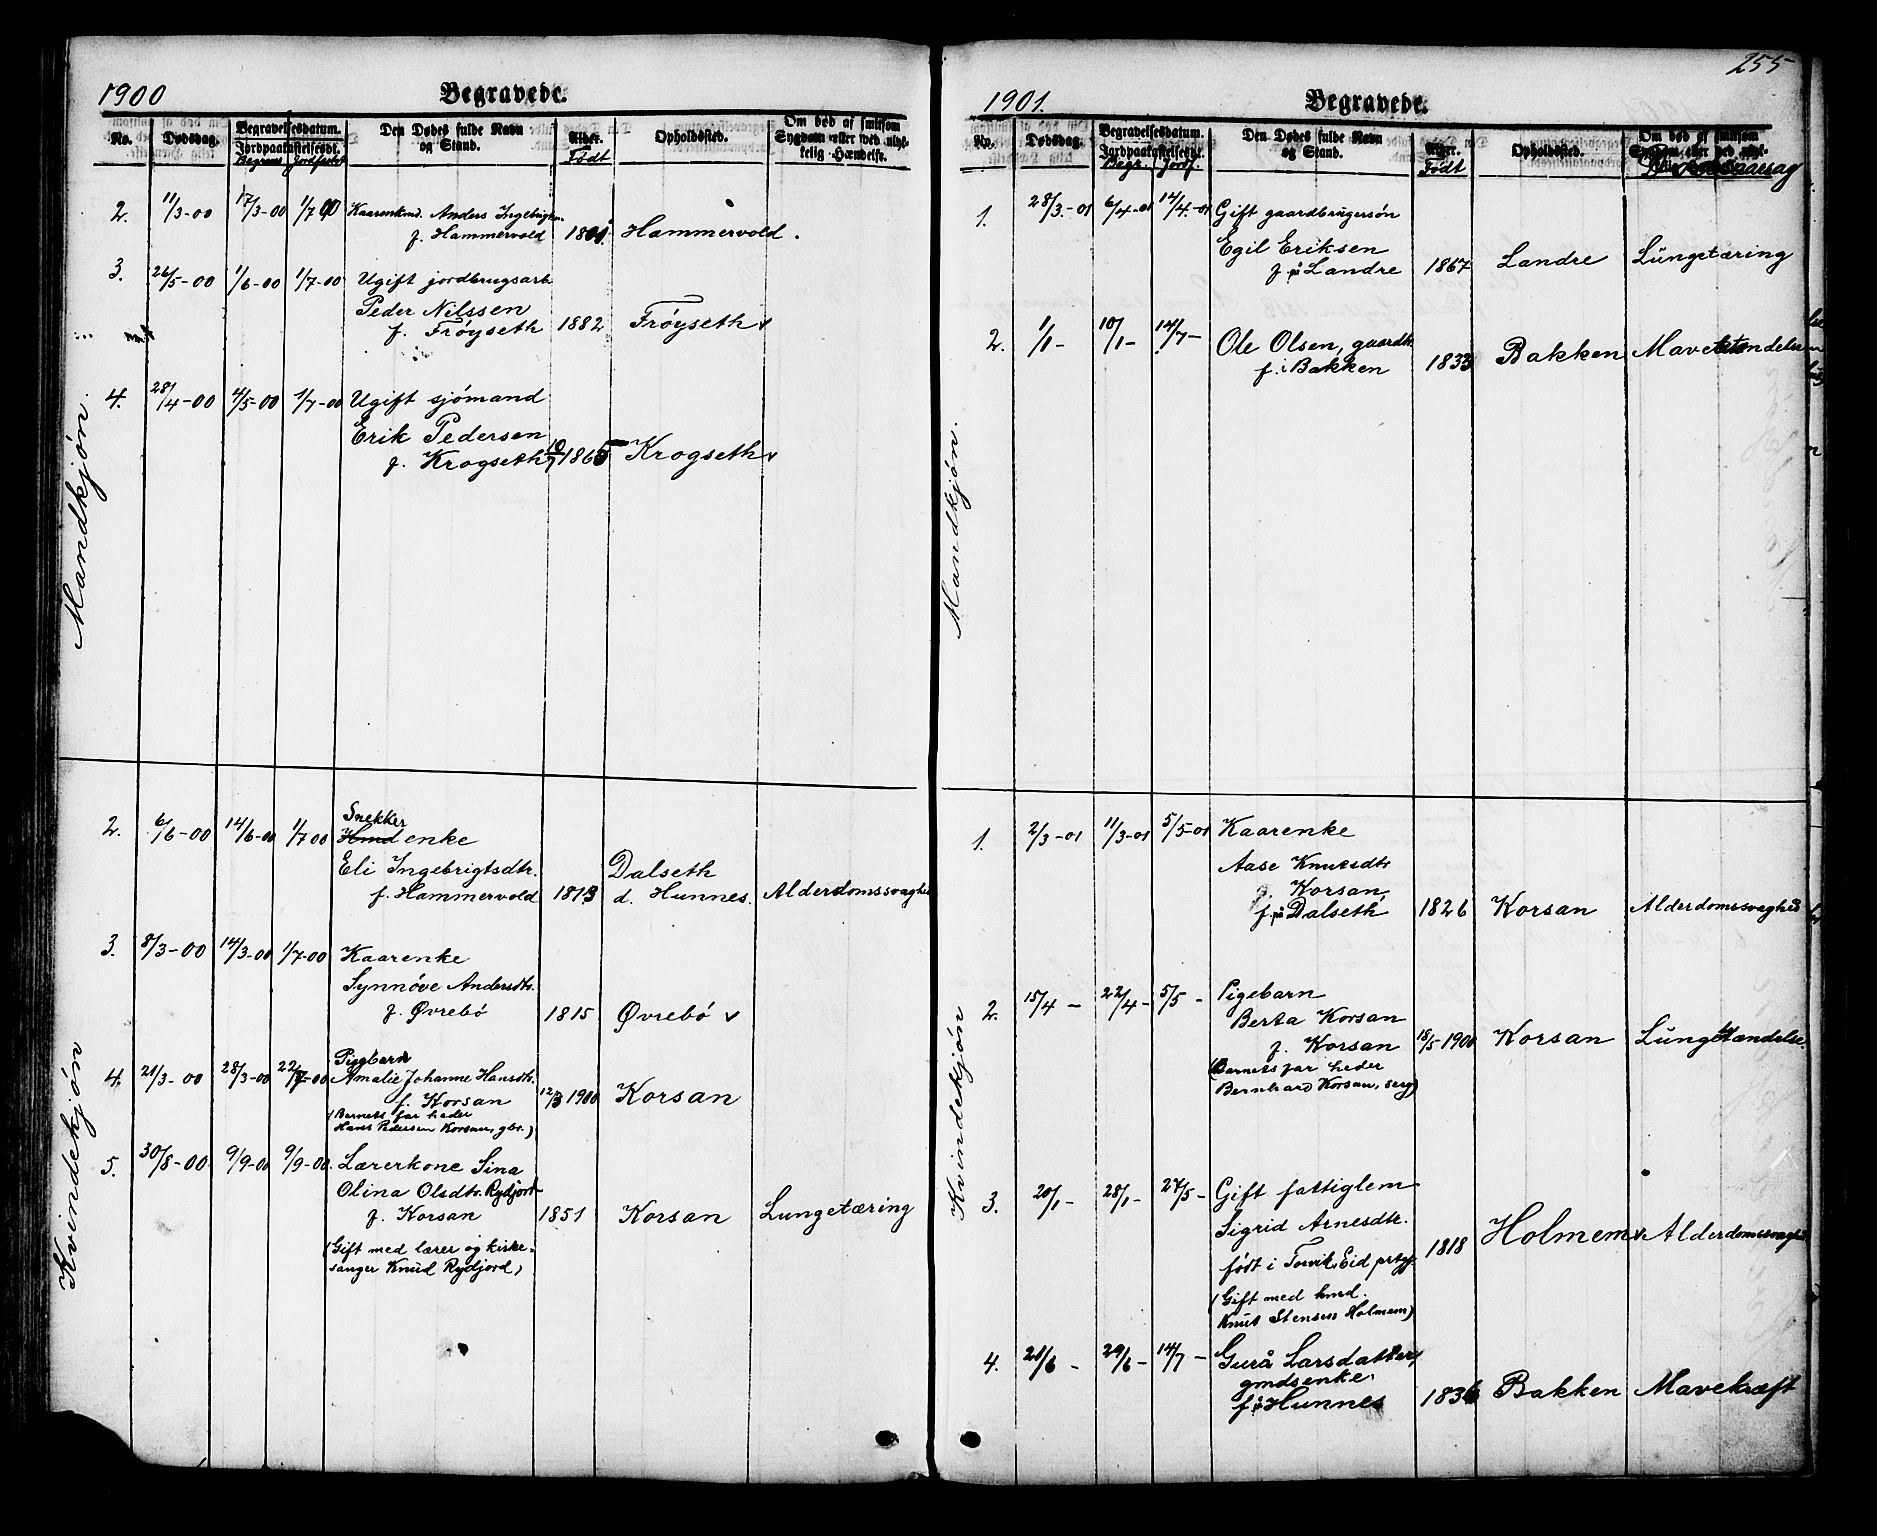 1900
Begravede.
No.
Dødsdag.
Begravelsesdatum.
Jordpaakastelsesdt.
Begravet Jordfæstet
Den Dødes fulde Navn
og Stand.
Alder.
Født
Opholdssted.
Om død af smitsom
Sygdom eller ved ulyk-
kelig Hændelse.
Mandkjøn.
2. 11/3-00 17/3-00 1/7 00 Kaarenkmd. Anders Ingebrigts.
f. Hammervold Hammervold.
3. 26/5-00 1/6-00 1/7-00 Ugift jordbrugsarb.
Peder Nilssen
f. Frøyseth 1882 Frøyseth v
4. 28/4-00 4/5-00 1/7-00 Ugift sjømand
Erik Pedersen
f. Krogseth 10/7 1865 Krogseth v
Kvindekjøn
2. 6/6-00 14/6-00 1/7 00 Snekker
enke
Eli Ingebrigtsdtr.
f. Hammervold 1813 Dalseth
d. Hunnes. Alderdomssvaghed
3. 8/3-00 14/3-00 1/7-00 Kaarenke
Synnøve Andersdtr.
f. Øvrebø 1815 Øvrebø v
4. 21/3-00 28/3-00 22/7-00 Pigebarn
Amalie Johanne Hansdtr.
f. Korsan 12/3 1900 Korsan
(Barnets far heder
Hans Pedersen Korsan, gbr.)
5. 30/8-00 9/9-00 9/9-00. Lærerkone Sina
Olina Olsdtr. Rydjord
f. Korsan 1851 Korsan Lungetæring
(Gift med lærer og kirke-
sanger Knud Rydjord)
255
1901.
Begravede.
No.
Dødsdag.
Begravelsesdatum.
Jordpaakastelsesdt.
Begr. Jordf.
Den Dødes fulde Navn
og Stand.
Alder.
Født
Opholdssted.
Om død af smitsom
Sygdom eller ved ulyk-
Dødsaarsag
Mandkjøn.
1. 28/3-01 6/4-01 14/4-01 Gift gaardbrugersøn
Egil Eriksen
f. på Landre 1867 Landre Lungetæring
2. 1/1- 10/1- 14/7- Ole Olsen, gaardbr.
f. i Bakken 1833 Bakken Mavebetændelse
Kvindekjøn
1. 2/3-01 11/3-01 5/5-01 Kaarenke
Aase Knutsdtr.
Korsan,
f. på Dalseth 1826 Korsan Alderdomssvaghed
2. 15/4- 22/4- 5/5- Pigebarn
Berta Korsan
f. Korsan 18/5-1900 Korsan Lungebetændelse.
(Barnets far heder
Bernhard Korsan, serg)
3. 20/1- 28/1- 27/5- Gift fattiglem
Sigrid Arnesdtr.
født i Torvik, Eid prstgj. 1818 Holmem v Alderdomssvaghed
(Gift med hmd.
Knut Stensen Holmem)
4. 21/6- 29/6- 14/7- Gurå Larsdatter,
gmdsenke,
f. på Hunnes 1836 Bakken Mavekræft